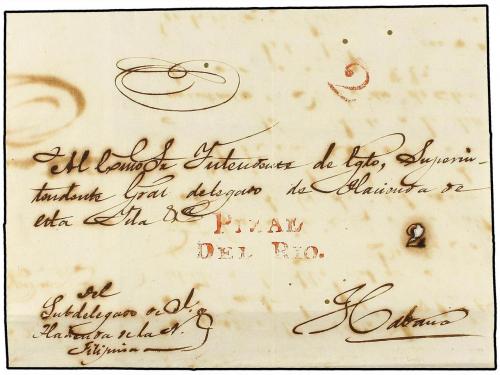 2
Al Exmo Sr Intendente de Egto, Superin-
tendente Gral delegado de Hacienda de
esta Isla &
PINAL
DEL RIO.
2
Del
Subdelegado de
Hacienda de la N.
Filipina
Habana